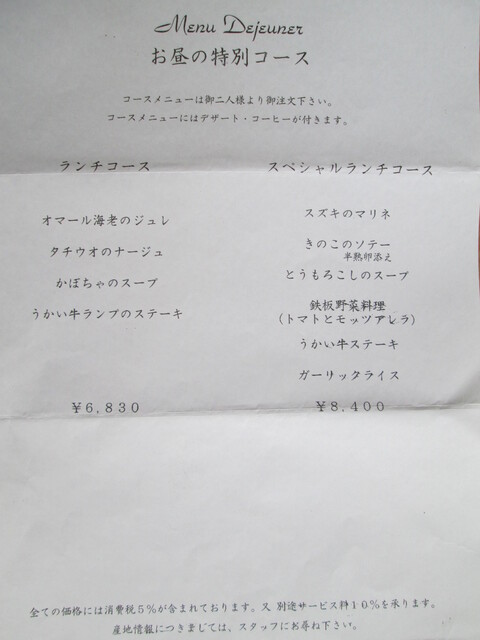 Menu Dejeuner
お昼の特別コース
コースメニューは御二人様より御注文下さい。
コースメニューにはデザート・コーヒーが付きます。
ランチコース
オマール海老のジュレ
タチウオのナージュ
かぼちゃのスープ
うかい牛ランプのステーキ
￥6,830
スペシャルランチコース
スズキのマリネ
きのこのソテー
半熟卵添え
とうもろこしのスープ
鉄板野菜料理
(トマトとモッツアレラ)
うかい牛ステーキ
ガーリッタライス
￥8,400
全ての価格には消費税5％が含まれております。又 別途サービス料10％を承ります。
産地情報につきましては、スタッフにお尋ね下さい。